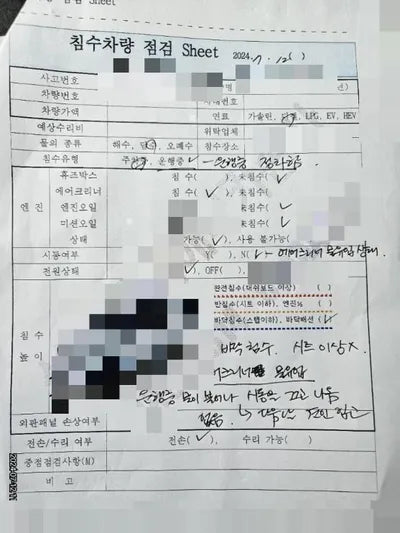 점검 Sheet
침수차량 점검 Sheet 2024. 7. 12( )
사고번호 명
차량번호 년)
차량가액 사내번호
연료 가솔린, 디젤, LPG, EV, HEV
예상수리비 위탁업체
물의 종류 해수, 담수, 오폐수 침수장소
침수유형 주차중, 운행중 ✓ - 운행중 정차함.
엔진
휴즈박스 침수( ), 미침수( ✓
에어크리너 침수( ✓ ), 미침수( )
엔진오일 미침수( ✓
미션오일 미침수( ✓
상태 가능( ✓ ), 사용 불가능(
시동여부 Y( ), N( ✓ 에어크리너 물유입 상태.
전원상태 ✓ ), OFF( )
침수 높이
완전침수(대쉬보드 이상) ( )
반침수(시트 이하), 엔진½ ( )
바닥침수(스텝이하), 바닥매션 ( ✓ )
바닥 침수, 시트 이상 X.
물유입
운행중 물이 시동을 끄고 나옴
없음. 견인 입고
외판패널 손상여부
전손/수리 여부 전손( ✓ ), 수리 가능( )
중점점검사항(M)
비 고